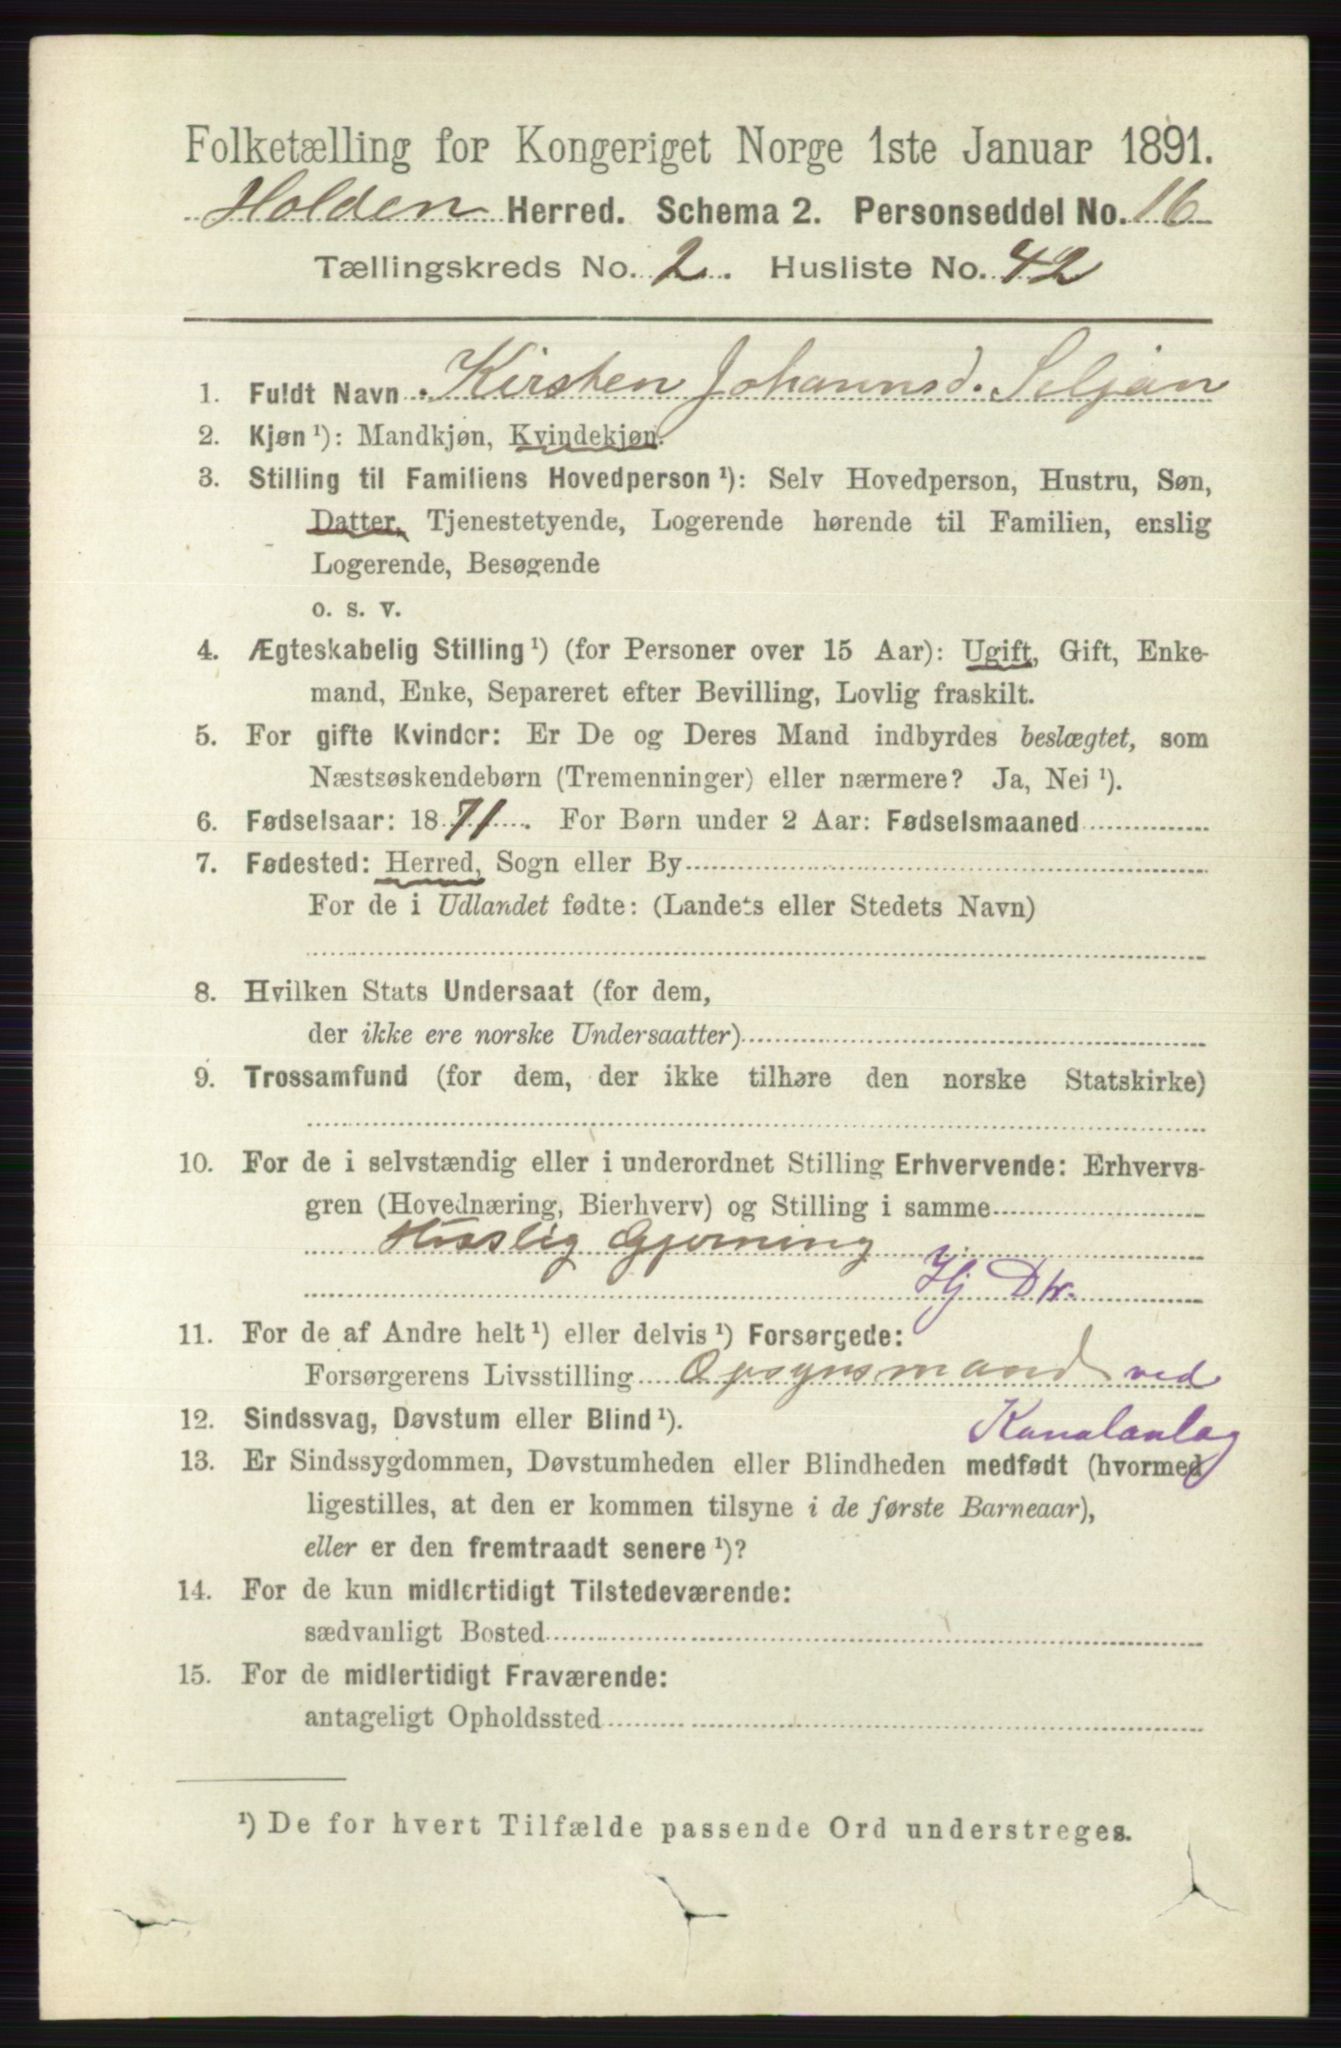 Folketælling for Kongeriget Norge 1ste Januar 1891.
Holden Herred. Schema 2. Personseddel No. 16
Tællingskreds No. 2. Husliste No. 42
1. Fuldt Navn Kirsten Johannsd. Seljan
2. Kjøn ¹): Mandkjøn, Kvindekjøn.
3. Stilling til Familiens Hovedperson ¹): Selv Hovedperson, Hustru, Søn,
Datter, Tjenestetyende, Logerende hørende til Familien, enslig
Logerende, Besøgende
o. s. v.
4. Ægteskabelig Stilling ¹) (for Personer over 15 Aar): Ugift, Gift, Enke-
mand, Enke, Separeret efter Bevilling, Lovlig fraskilt.
5. For gifte Kvinder: Er De og Deres Mand indbyrdes beslægtet, som
Næstsøskendebørn (Tremenninger) eller nærmere? Ja, Nei ¹).
6. Fødselsaar: 1871. For Børn under 2 Aar: Fødselsmaaned
7. Fødested: Herred, Sogn eller By
For de i Udlandet fødte: (Landets eller Stedets Navn)
8. Hvilken Stats Undersaat (for dem,
der ikke ere norske Undersaatter)
9. Trossamfund (for dem, der ikke tilhøre den norske Statskirke)
10. For de i selvstændig eller i underordnet Stilling Erhvervende: Erhvervs-
gren (Hovednæring, Bierhverv) og Stilling i samme
Huslig Gjerning
Hj Dtr.
11. For de af Andre helt ¹) eller delvis ¹) Forsørgede:
Forsørgerens Livsstilling Opsynsmand ved
Kanalanlæg
12. Sindssvag, Døvstum eller Blind ¹).
13. Er Sindssygdommen, Døvstumheden eller Blindheden medfødt (hvormed
ligestilles, at den er kommen tilsyne i de første Barneaar),
eller er den fremtraadt senere ¹)?
14. For de kun midlertidigt Tilstedeværende:
sædvanligt Bosted
15. For de midlertidigt Fraværende:
antageligt Opholdssted
¹) De for hvert Tilfælde passende Ord understreges.